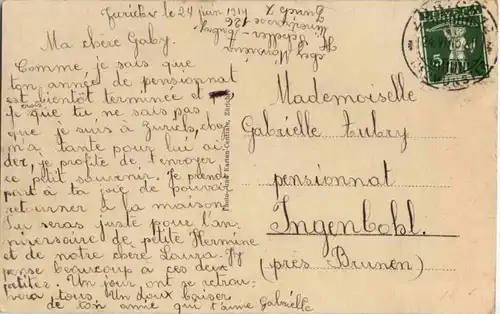 Zurich le 24 juin 1914
Ma chère Gaby.
Comme je sais que
ton année de pensionnat
est bientôt terminée et
que tu ne sais pas
que je suis à Zurich, chez
m'a tante pour lui ai-
der, je profite de t'envoyer
ce petit souvenir. Je prend
part à ta joie de pouvoir
retourner à la maison
Tu seras juste pour l'an-
niversaire de petite Hermine
et de notre chère Laura. J'y
pense beaucoup a ces deux
petites. Un jour ont se retrou-
vera tous. Un doux baiser
de ton amie qui t'aime Gabrielle
Zurich
136
Mademoiselle
Gabrielle Aubry
pensionnat
Ingenbohl.
(près Brunen)
Photo-Karten-Centrale, Zürich
5